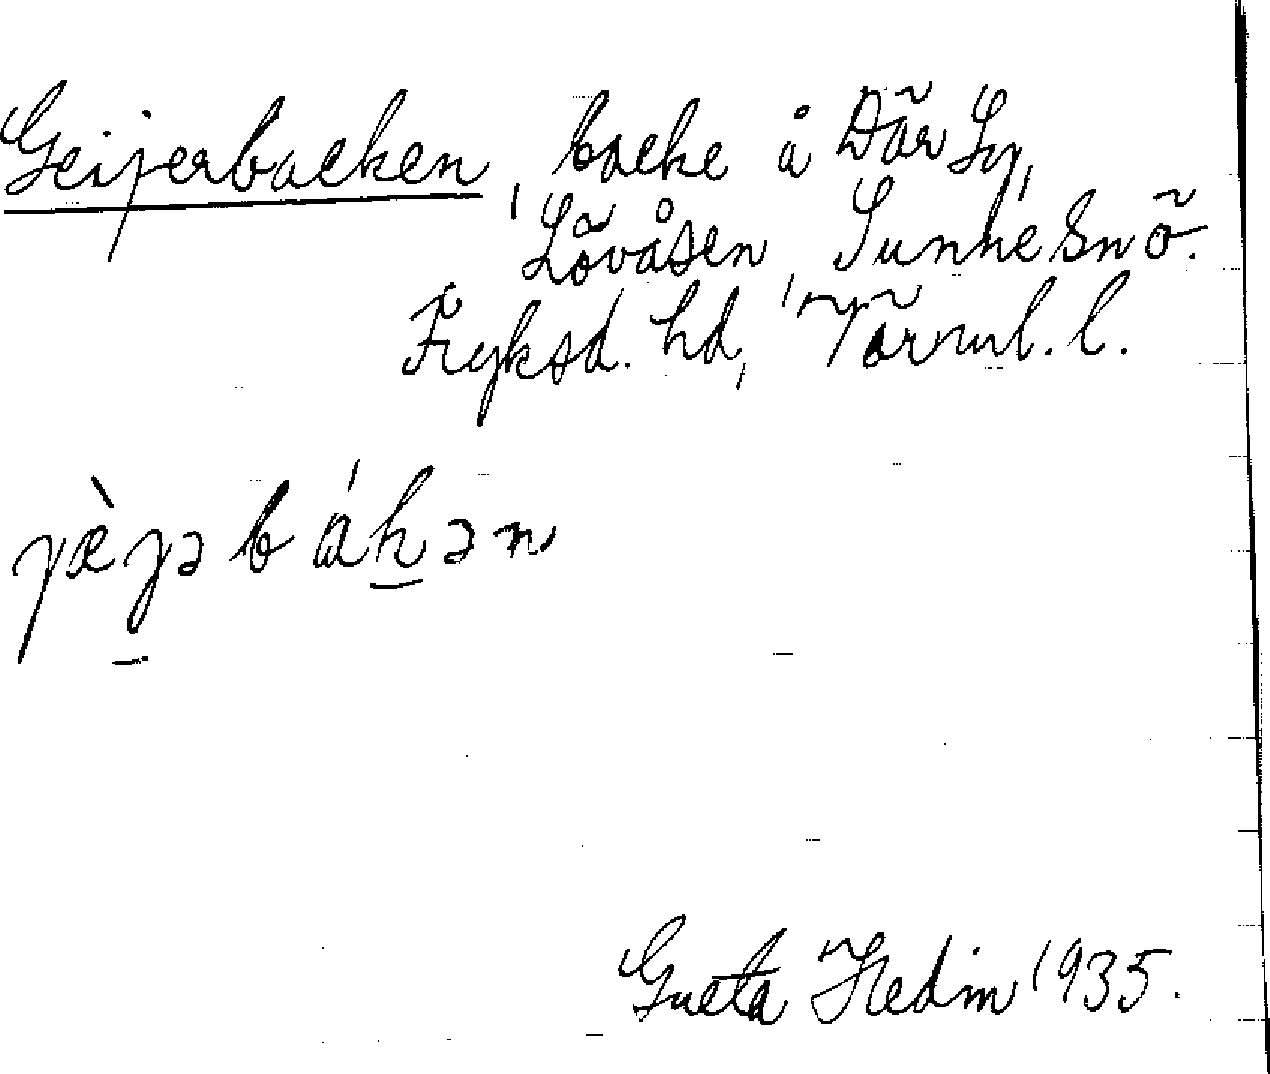 Geijerbacken, backe å Där Sy,
Lövåsen, Sunne sn ö.
Fryksd. hd, Värml. l.
Greta Hedin 1935.